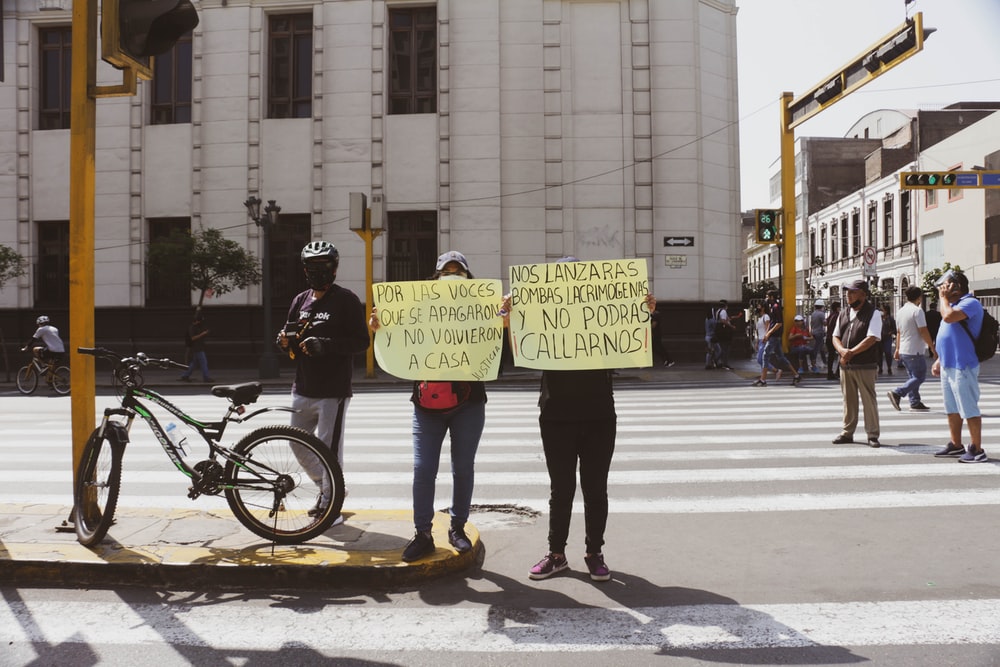 POR LAS VOCES
QUE SE APAGARON
Y NO VOLVIERON
A CASA
JUSTICIA
NOS LANZARAS
BOMBAS LACRIMOGENAS
Y NO PODRAS
¡CALLARNOS!